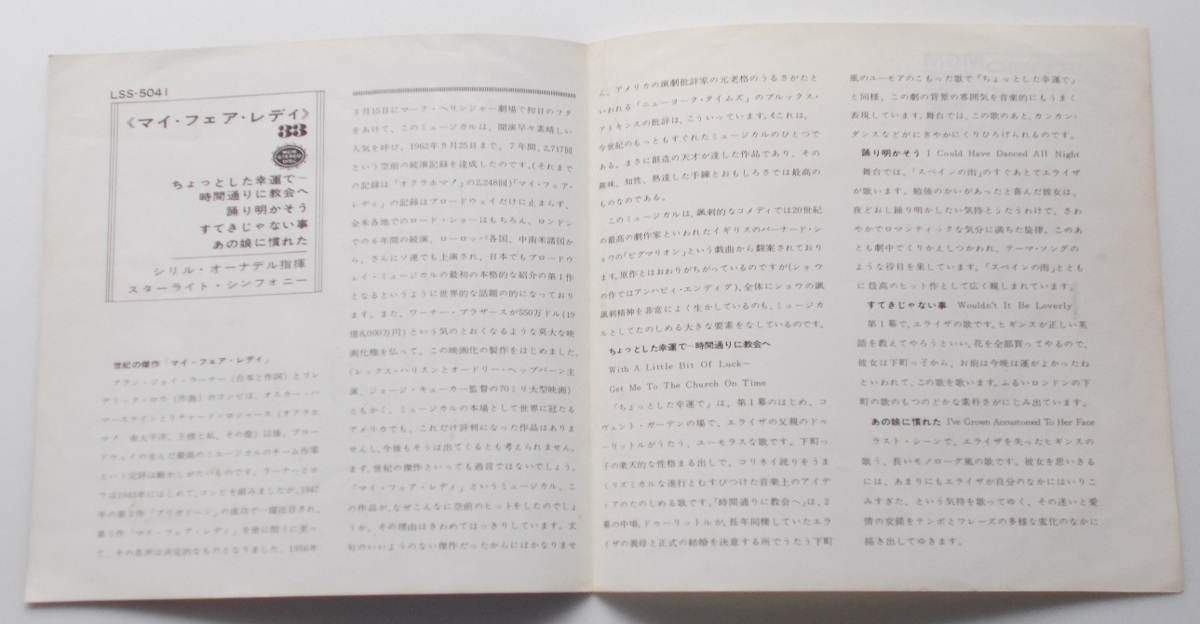 LSS-5041
《マイ・フェア・レディ》
33
ちょっとした幸運で~
時間通りに教会へ
踊り明かそう
すてきじゃない事
あの娘に慣れた
シリル・オーナデル指揮
スターライト・シンフォニー
世紀の傑作「マイ・フェア・レディ」
アラン・ジェイ・ラーナー(台本と作詞)とフレ
デリック・ロウ(作曲)のコンビは、オスカー・ハ
マースタインとリチャード・ロジャース(オクラホ
マ! 南太平洋、王様と私、その他)以後、ブロー
ドウェイの生んだ最高のミュージカルのチーム作家
という定評は動かしがたいものです。ラーナーとロ
ウは1943年にはじめて、コンビを組みましたが、1947
年の第3作「ブリガドーン」の成功で一躍注目され、
第5作「マイ・フェア・レディ」を世に問うに至っ
て、その名声は決定的なものとなりました。1956年
3月15日にマーク・ヘリンジャー劇場で初日のフタ
をあけて、このミュージカルは、開演早々素晴しい
人気を呼び、1962年9月25日まで、7年間、2,717回
という空前の続演記録を達成したのです。(それまで
の記録は「オクラホマ!」の2,248回)「マイ・フェア・
レディ」の記録はブロードウェイだけに止まらず、
全米各地でのロード・ショーはもちろん、ロンドン
での6年間の続演、ローロッパ各国、中南米諸国か
ら、さらにソ連でも上演され、日本でもブロードウ
ェイ・ミュージカルの最初の本格的な紹介の第1作
となるというように世界的な話題の的になっており
ます。また、ワーナー・ブラザースが550万ドル(19
億8,000万円)という気のとおくなるような莫大な映
画化権を仏って、この映画化の製作をはじめました。
(レックス・ハリスンとオードリー・ヘップバーン主
演、ジョージ・キューカー監督の70ミリ大型映画)
ともかく、ミュージカルの本場として世界に冠たる
アメリカでも、これだけ評判になった作品はありま
せんし、今後もそうは出てくるとも考えられません。
まず、世紀の傑作といっても過言ではないでしょう。
「マイ・フェア・レディ」というミュージカル、こ
の作品が、なぜこんなに空前のヒットをしたのでしょ
うか。その理由はきわめてはっきりしています。文
句のいいようのない傑作だったからにはかなりませ
ん。アメリカの演劇批評家の元老格のうるさがたと
いわれる「ニューヨーク・タイムズ」のブルックス・
アトキンスの批評は、こういっています。《これは、
今世紀のもっともすぐれたミュージカルのひとつで
ある。まさに創造の天才が達した作品であり、その
趣味、知性、熟達した手練とおもしろさでは最高の
ものなのである。
このミュージカルは、諷刺的なコメディでは20世紀
の最高の劇作家といわれたイギリスのバーナード・シ
ョウの「ピグマリオン」という戯曲から翻案されており
ます。原作とはおわりがちがっているのですが(ショウ
の作ではアンハピィ・エンディグ)、全体にショウの諷
諷刺精神を非常によく生かしているのも、ミュージカ
ルとしてたのしめる大きな要素をなしているのです。
ちょっとした幸運で~時間通りに教会へ
With A Little Bit Of Luck~
Get Me To The Church On Time
「ちょっとした幸運で」は、第1幕のはじめ、コ
ヴェント・ガーデンの場で、エライザの父親のドゥ
ーリットルがうたう、ユーモラスな歌です。下町っ
子の楽天的な性格まる出しで、コリネイ訛りをうま
くリズミカルな進行とむすびつけた音楽上のアイデ
アのたのしめる歌です。「時間通りに教会へ」は、2
幕の中頃、ドゥーリットルが、長年同棲していたエラ
イザの義母と正式の結婚を決意する所でうたう下町
風のユーモアのこもった歌で「ちょっとした幸運で」
と同様、この劇の背景の雰囲気を音楽的にもうまく
表現しています。舞台では、この歌のあと、カンカン・
ダンスなどがにぎやかにくりひろげられるのです。
踊り明かそう I Could Have Danced All Night
舞台では、「スペインの雨」のすぐあとでエライザ
が歌います。勉強のかいがあったと喜んだ彼女は、
夜どおし踊り明かしたい気持とうたうわけで、さわ
やかでロマンティックな気分に満ちた旋律。このあ
とも劇中でくりかえしつかわれ、テーマ・ソングの
ような役目を果しています。「スペインの雨」ととも
に最高のヒット作として広く親しまれています。
すてきじゃない事 Wouldn't It Be Loverly
第1幕で、エライザの歌です。ヒギンスが正しい英
語を教えてやろうといい、花を全部買ってやるので、
彼女は下町っ子から、お前は今晩は運がよかったね
といわれて、この歌を歌います。ふるいロンドンの下
町の歌のもつのどかな素朴さがにじみ出ています。
あの娘に慣れた I've Grown Accustomed To Her Face
ラスト・シーンで、エライザを失ったヒギンスの
歌う、長いモノローグ風の歌です。彼女を思いきる
には、あまりにもエライザが自分のなかにはいりこ
みすぎた、という気持を歌ってゆく、その迷いと愛
情の交錯をテンポとフレーズの多様な変化のなかに
描き出してゆきます。